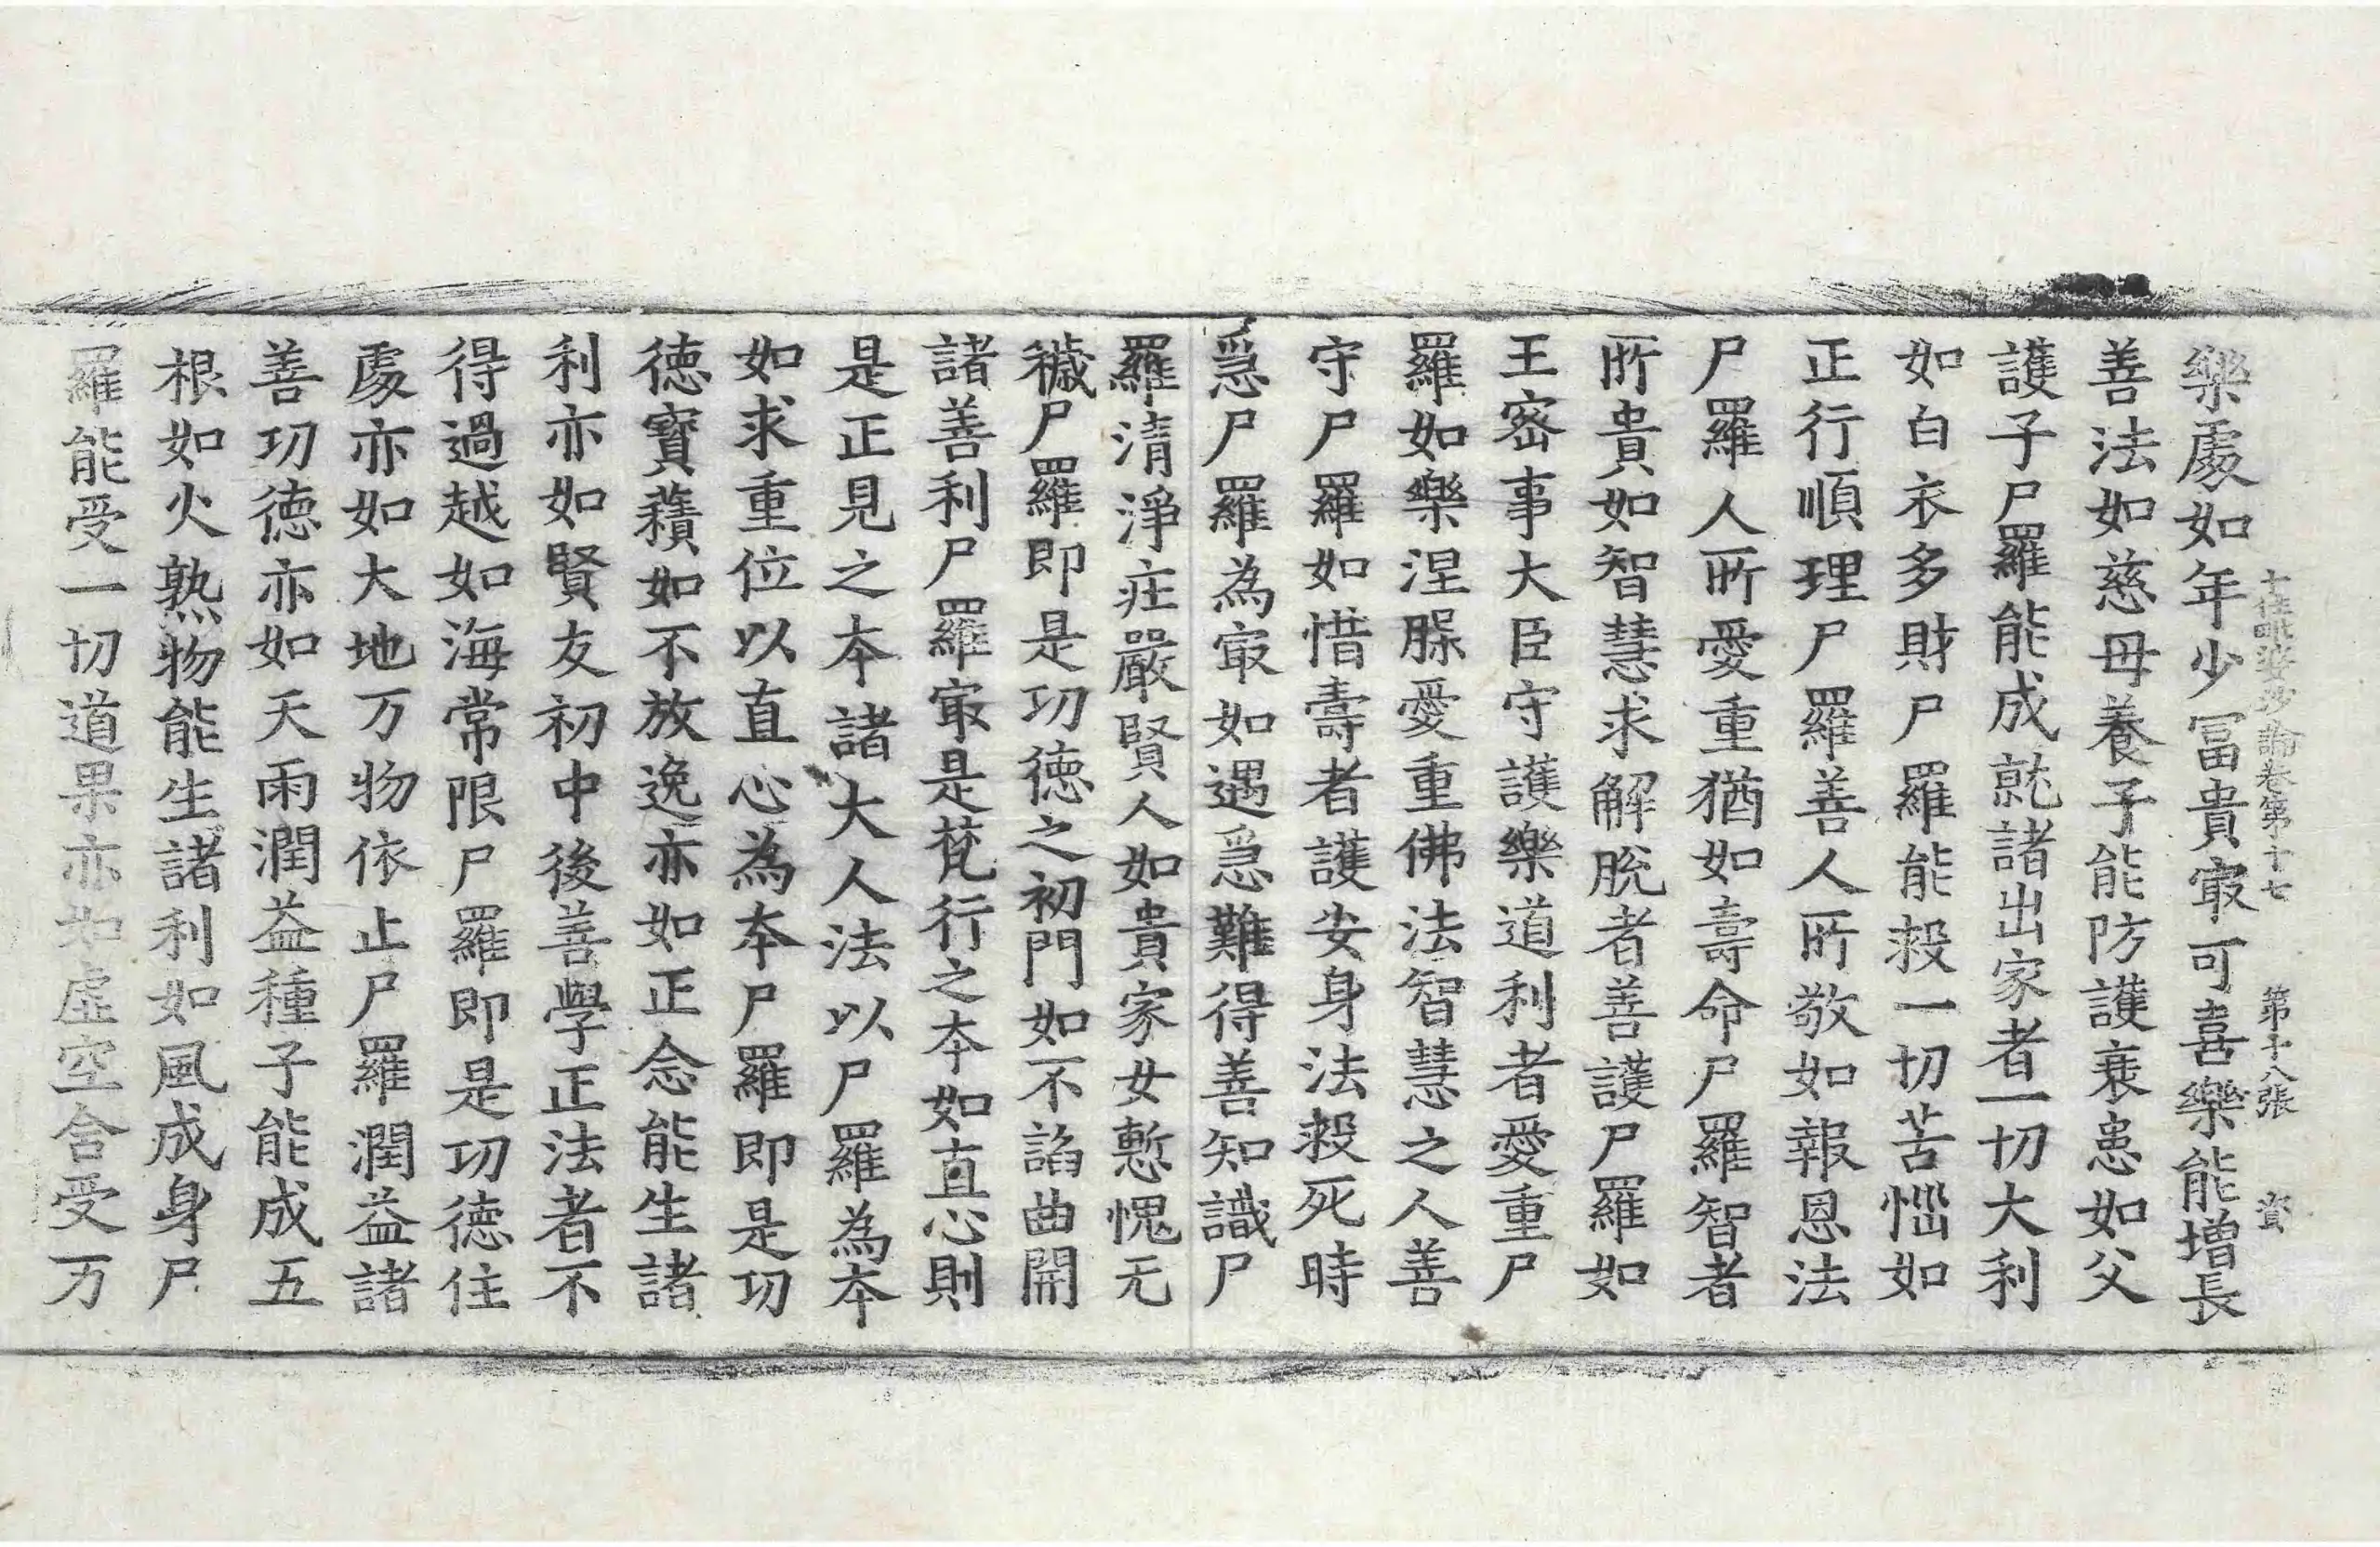 十住毗婆沙論卷第十七 第十八張 資
樂處如年少冨貴㝡可喜樂能增長
善法如慈母養子能防護衰患如父
護子尸羅能成就諸出家者一切大利
如白衣多財尸羅能救一切苦惱如
正行順理尸羅善人所敬如報恩法
尸羅人所愛重猶如壽命尸羅智者
所貴如智慧求解脫者善護尸羅如
王密事大臣守護樂道利者愛重尸
羅如樂涅脲愛重佛法智慧之人善
守尸羅如惜壽者護安身法救死時
急尸羅為㝡如遇急難得善知識尸
羅清淨莊嚴賢人如貴家女慙愧无
穢尸羅即是功徳之初門如不諂曲開
諸善利尸羅㝡是梵行之夲如直心則
是正見之夲諸大人法以尸羅為夲
如求重位以直心為夲尸羅即是功
徳寶藏如不放逸亦如正念能生諸
利亦如賢友初中後善學正法者不
得過越如海常限尸羅即是功徳住
處亦如大地万物依止尸羅潤益諸
善功徳亦如天雨潤益種子能成五
根如火熟物能生諸利如風成身尸
羅能受一切道果亦如虛空含受万